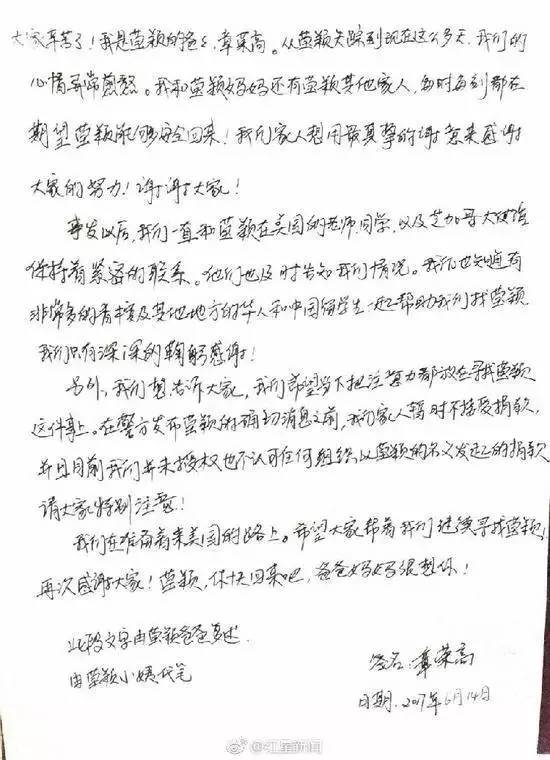 大家辛苦了！我是莹颖的爸爸，章荣高。从莹颖失踪到现在这么多天，我们的
心情异常煎熬。我和莹颖妈妈还有莹颖其他家人，每时每刻都在
期望莹颖能够安全回来！我们家人想用最真挚的谢意来感谢
大家的努力！谢谢大家！
事发以后，我们一直和莹颖在美国的老师、同学，以及芝加哥大使馆
保持着紧密的联系。他们也及时告知我们情况。我们也知道有
非常多的香槟及其他地方的华人和中国留学生一起帮助我们找莹颖
我们只有深深的鞠躬感谢！
另外，我们想告诉大家，我们希望当下把注意力都放在寻找莹颖
这件事上。在警方发布莹颖的确切消息之前，我们家人暂时不接受捐款，
并且目前我们并未授权也不认可任何组织以莹颖的名义发起的捐款
请大家特别注意！
我们在准备着来美国的路上。希望大家帮着我们继续寻找莹颖，
再次感谢大家！莹颖，你快回来吧，爸爸妈妈很想你！
此段文字由莹颖爸爸口述.
由莹颖小姨代笔
签名：章荣高
日期．2017年6月14日
@红星新闻